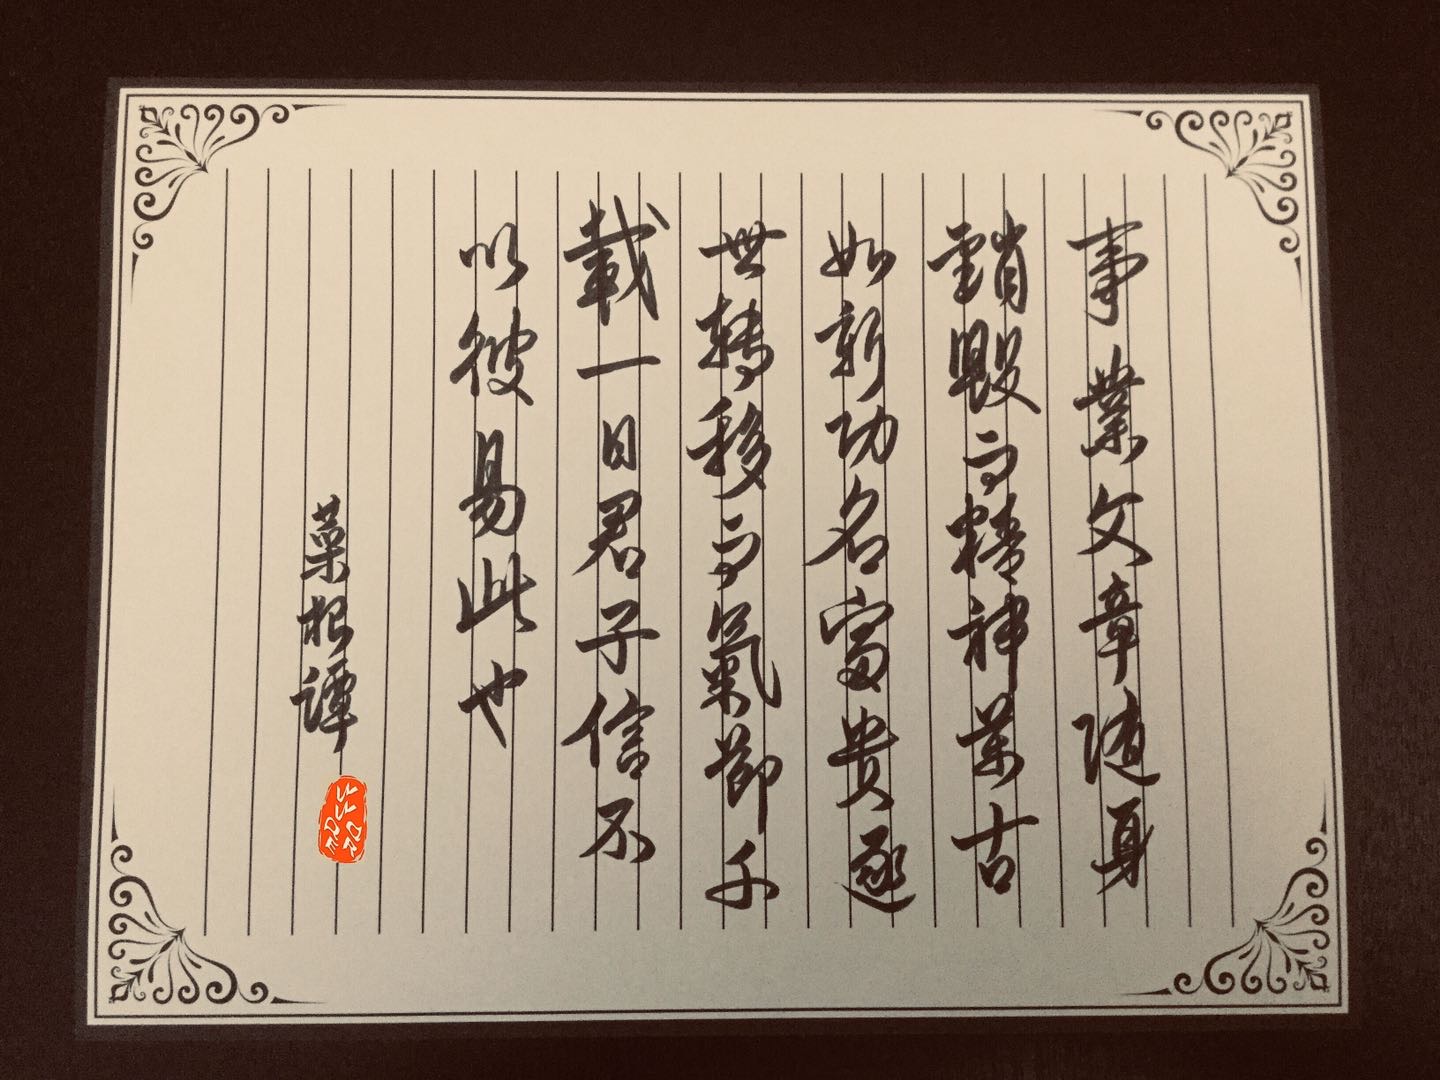 事業文章隨身
銷毀而精神萬古
如新功名富貴逐
世轉移而氣節千
載一日君子信不
以彼易此也
菜根譚